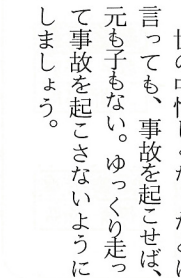 言っても、事故を起こせば、
元も子もない。ゆっくり走っ
て事故を起こさないように
しましょう。